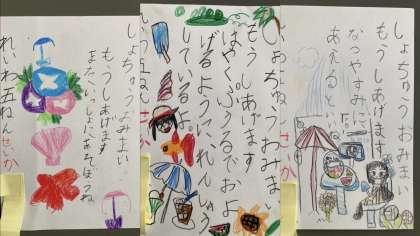 しょちゅうおみまい
もうしあげます
またいっしょにあそぼうね
れいわ五ねん せいか
しょちゅうおみまい
もうしあげます
はやくぷうるでおよ
げるようにれんしゅう
しているよ。
しょちゅうおみまい
もうしあげます
なつやすみに
あえるといいね。